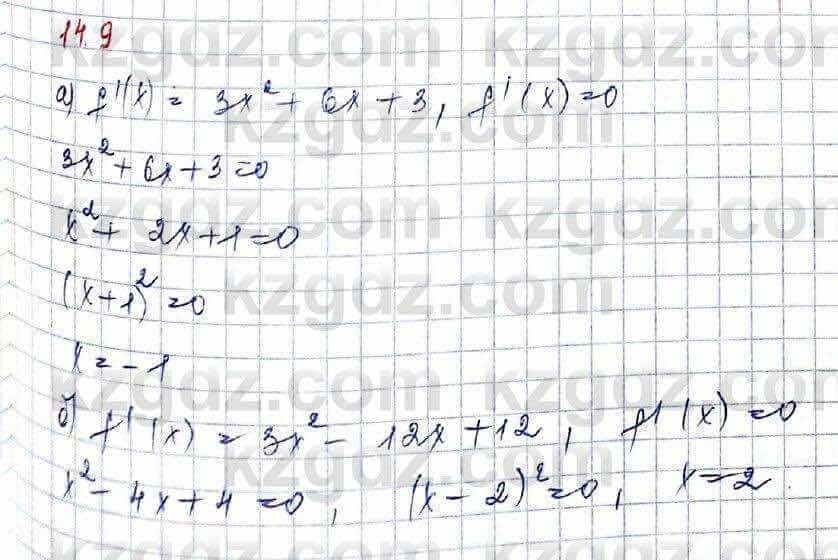 14.9
а) f'(x) = 3x² + 6x + 3, f'(x) = 0
3x² + 6x + 3 = 0
x² + 2x + 1 = 0
(x + 1)² = 0
x = - 1
б) f'(x) = 3x² - 12x + 12, f'(x) = 0
x² - 4x + 4 = 0, (x - 2)² = 0, x = 2.
kzgdz.com
kzgdz.com
kzgdz.com
kzgdz.com
kzgdz.com
kzgdz.com
kzgdz.com